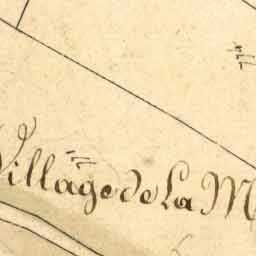 Village de La M